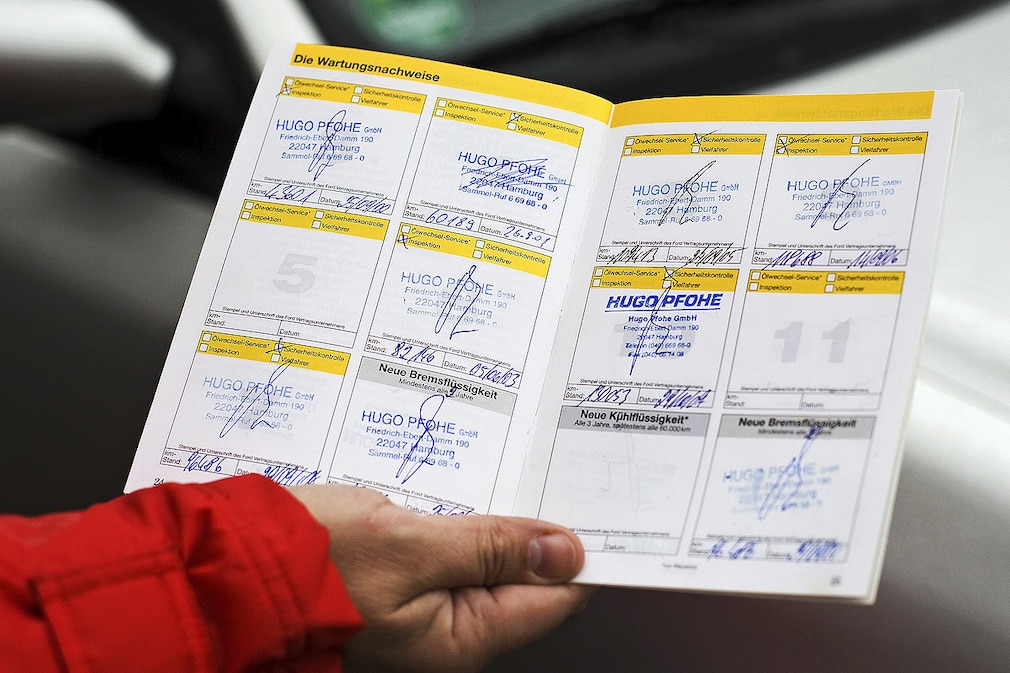 Die Wartungsnachweise
Ölwechsel-Service* Sicherheitskontrolle
Inspektion Vielfahrer
HUGO PFOHE GmbH
Friedrich-Ebert-Damm 190
22047 Hamburg
Sammel-Ruf 6 69 68 - 0
Stempel und Unterschrift des Ford Vertragsunternehmens
km-
Stand: Datum:
Ölwechsel-Service* Sicherheitskontrolle
Inspektion Vielfahrer
HUGO PFOHE GmbH
Friedrich-Ebert-Damm 190
22047 Hamburg
Sammel-Ruf 6 69 68 - 0
Stempel und Unterschrift des Ford Vertragsunternehmens
km-
Stand: 60189 Datum: 26.9.01
Ölwechsel-Service* Sicherheitskontrolle
Inspektion Vielfahrer
5
Stempel und Unterschrift des Ford Vertragsunternehmens
km-
Stand: Datum:
Ölwechsel-Service* Sicherheitskontrolle
Inspektion Vielfahrer
HUGO PFOHE GmbH
Friedrich-Ebert-Damm 190
22047 Hamburg
Sammel-Ruf 6 69 68 - 0
Stempel und Unterschrift des Ford Vertragsunternehmens
km-
Stand: Datum: 05/06/03
Ölwechsel-Service* Sicherheitskontrolle
Inspektion Vielfahrer
HUGO PFOHE GmbH
Friedrich-Ebert-Damm 190
22047 Hamburg
Sammel-Ruf 6 69 68 - 0
Stempel und Unterschrift des Ford Vertragsunternehmens
km-
Stand: 
24
Neue Bremsflüssigkeit
Mindestens alle Jahre
HUGO PFOHE GmbH
Friedrich-Ebert-Damm 190
22047 Hamburg
Sammel-Ruf 6 69 68 - 0
Stempel und Unterschrift des Ford Vertragsunternehmens
Ölwechsel-Service* Sicherheitskontrolle
Inspektion Vielfahrer
HUGO PFOHE GmbH
Friedrich-Ebert-Damm 190
22047 Hamburg
Sammel-Ruf 6 69 68 - 0
Stempel und Unterschrift des Ford Vertragsunternehmens
km-
Stand: Datum:
Ölwechsel-Service* Sicherheitskontrolle
Inspektion Vielfahrer
HUGO PFOHE GMBH
Friedrich-Ebert-Damm 190
22047 Hamburg
Sammel-Ruf 6 69 68 - 0
Stempel und Unterschrift des Ford Vertragsunternehmens
km-
Stand: Datum:
Ölwechsel-Service* Sicherheitskontrolle
Inspektion Vielfahrer
HUGO PFOHE
Hugo Pfohe GmbH
Friedrich-Ebert-Damm 190
22047 Hamburg
Telefon (040) 669 68-0
Stempel und Unterschrift des Ford Vertragsunternehmens
km-
Stand: Datum:
Ölwechsel-Service* Sicherheitskontrolle
Inspektion Vielfahrer
11
Stempel und Unterschrift des Ford Vertragsunternehmens
km-
Stand: Datum:
Neue Kühlflüssigkeit*
Alle 3 Jahre, spätestens alle 60.000km
Stempel und Unterschrift des Ford Vertragsunternehmens
Datum:
Neue Bremsflüssigkeit
Mindestens alle Jahre
HUGO PFOHE GmbH
Friedrich-Ebert-Damm 190
22047 Hamburg
Sammel-Ruf 6 69 68 - 0
Stempel und Unterschrift des Ford Vertragsunternehmens
km-
Stand: